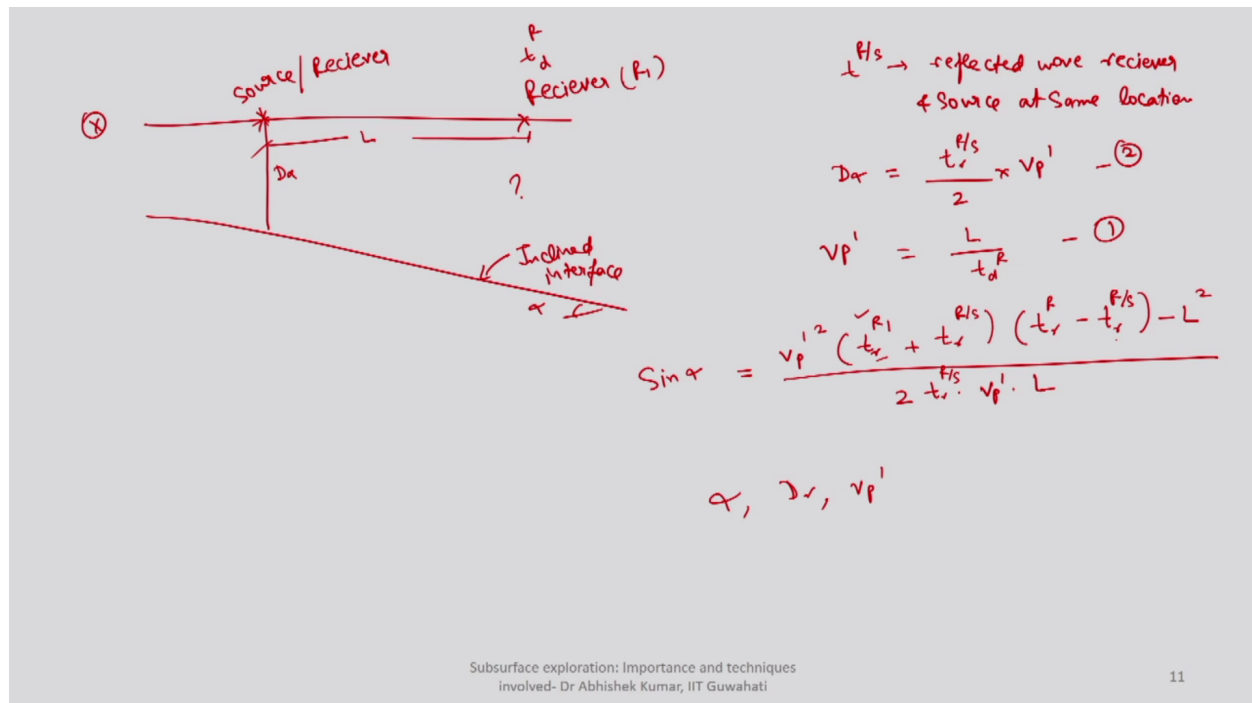 Source/Reciever
t_d^R
Reciever (R₁)
Ⓧ
L
Dα
?
Inclined
interface
α
t^{R/S} → reflected wave reciever
& Source at Same location
Dα = t_r^{R/S} / 2 × Vp' - ②
Vp' = L / t_d^R - ①
Sin α = Vp'^2 (t_r^{R1} + t_r^{R/S}) (t_r^R - t_r^{R/S}) - L^2 / 2 t_r^{R/S} . Vp' . L
α, Dr, Vp'
Subsurface exploration: Importance and techniques
involved- Dr Abhishek Kumar, IIT Guwahati
11